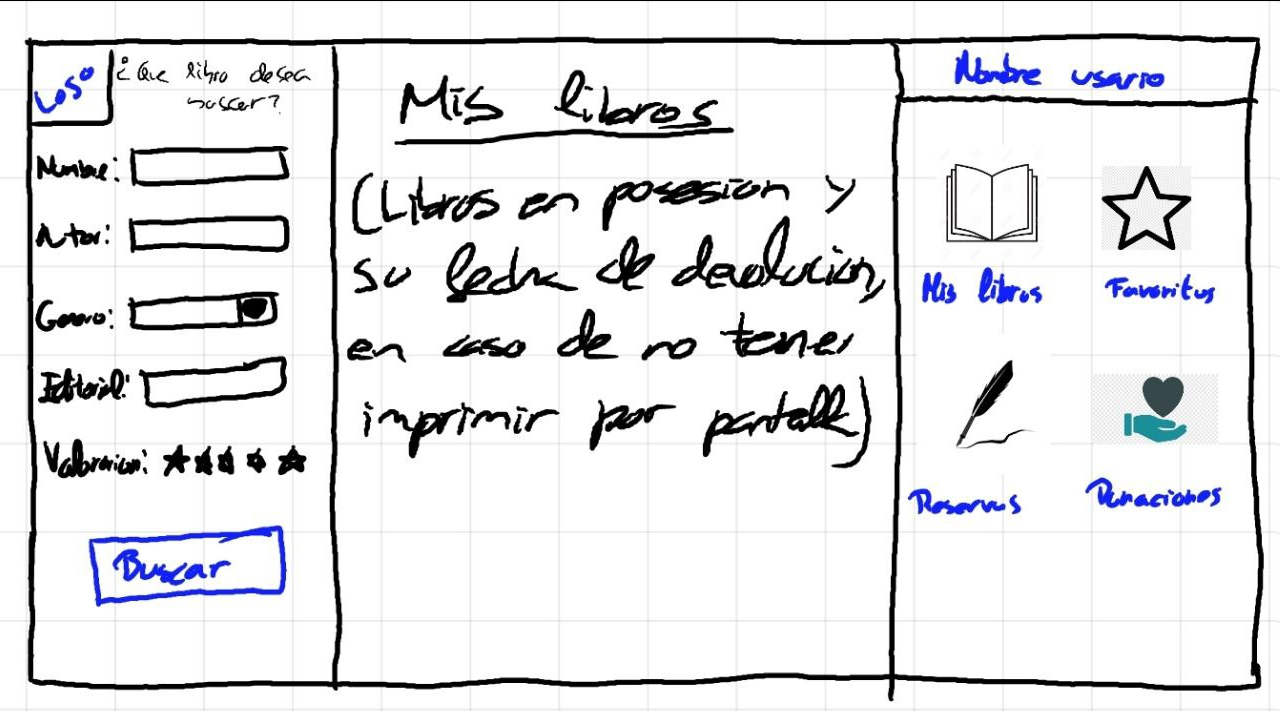 Logo
¿Que libro desea
buscar?
Nombre:
Autor:
Genero:
Editorial:
Valoracion:
Buscar
Mis libros
(Libros en posesion y
su fecha de devolucion,
en caso de no tener
imprimir por pantalla)
Nombre usuario
Mis libros
Favoritos
Reservas
Donaciones